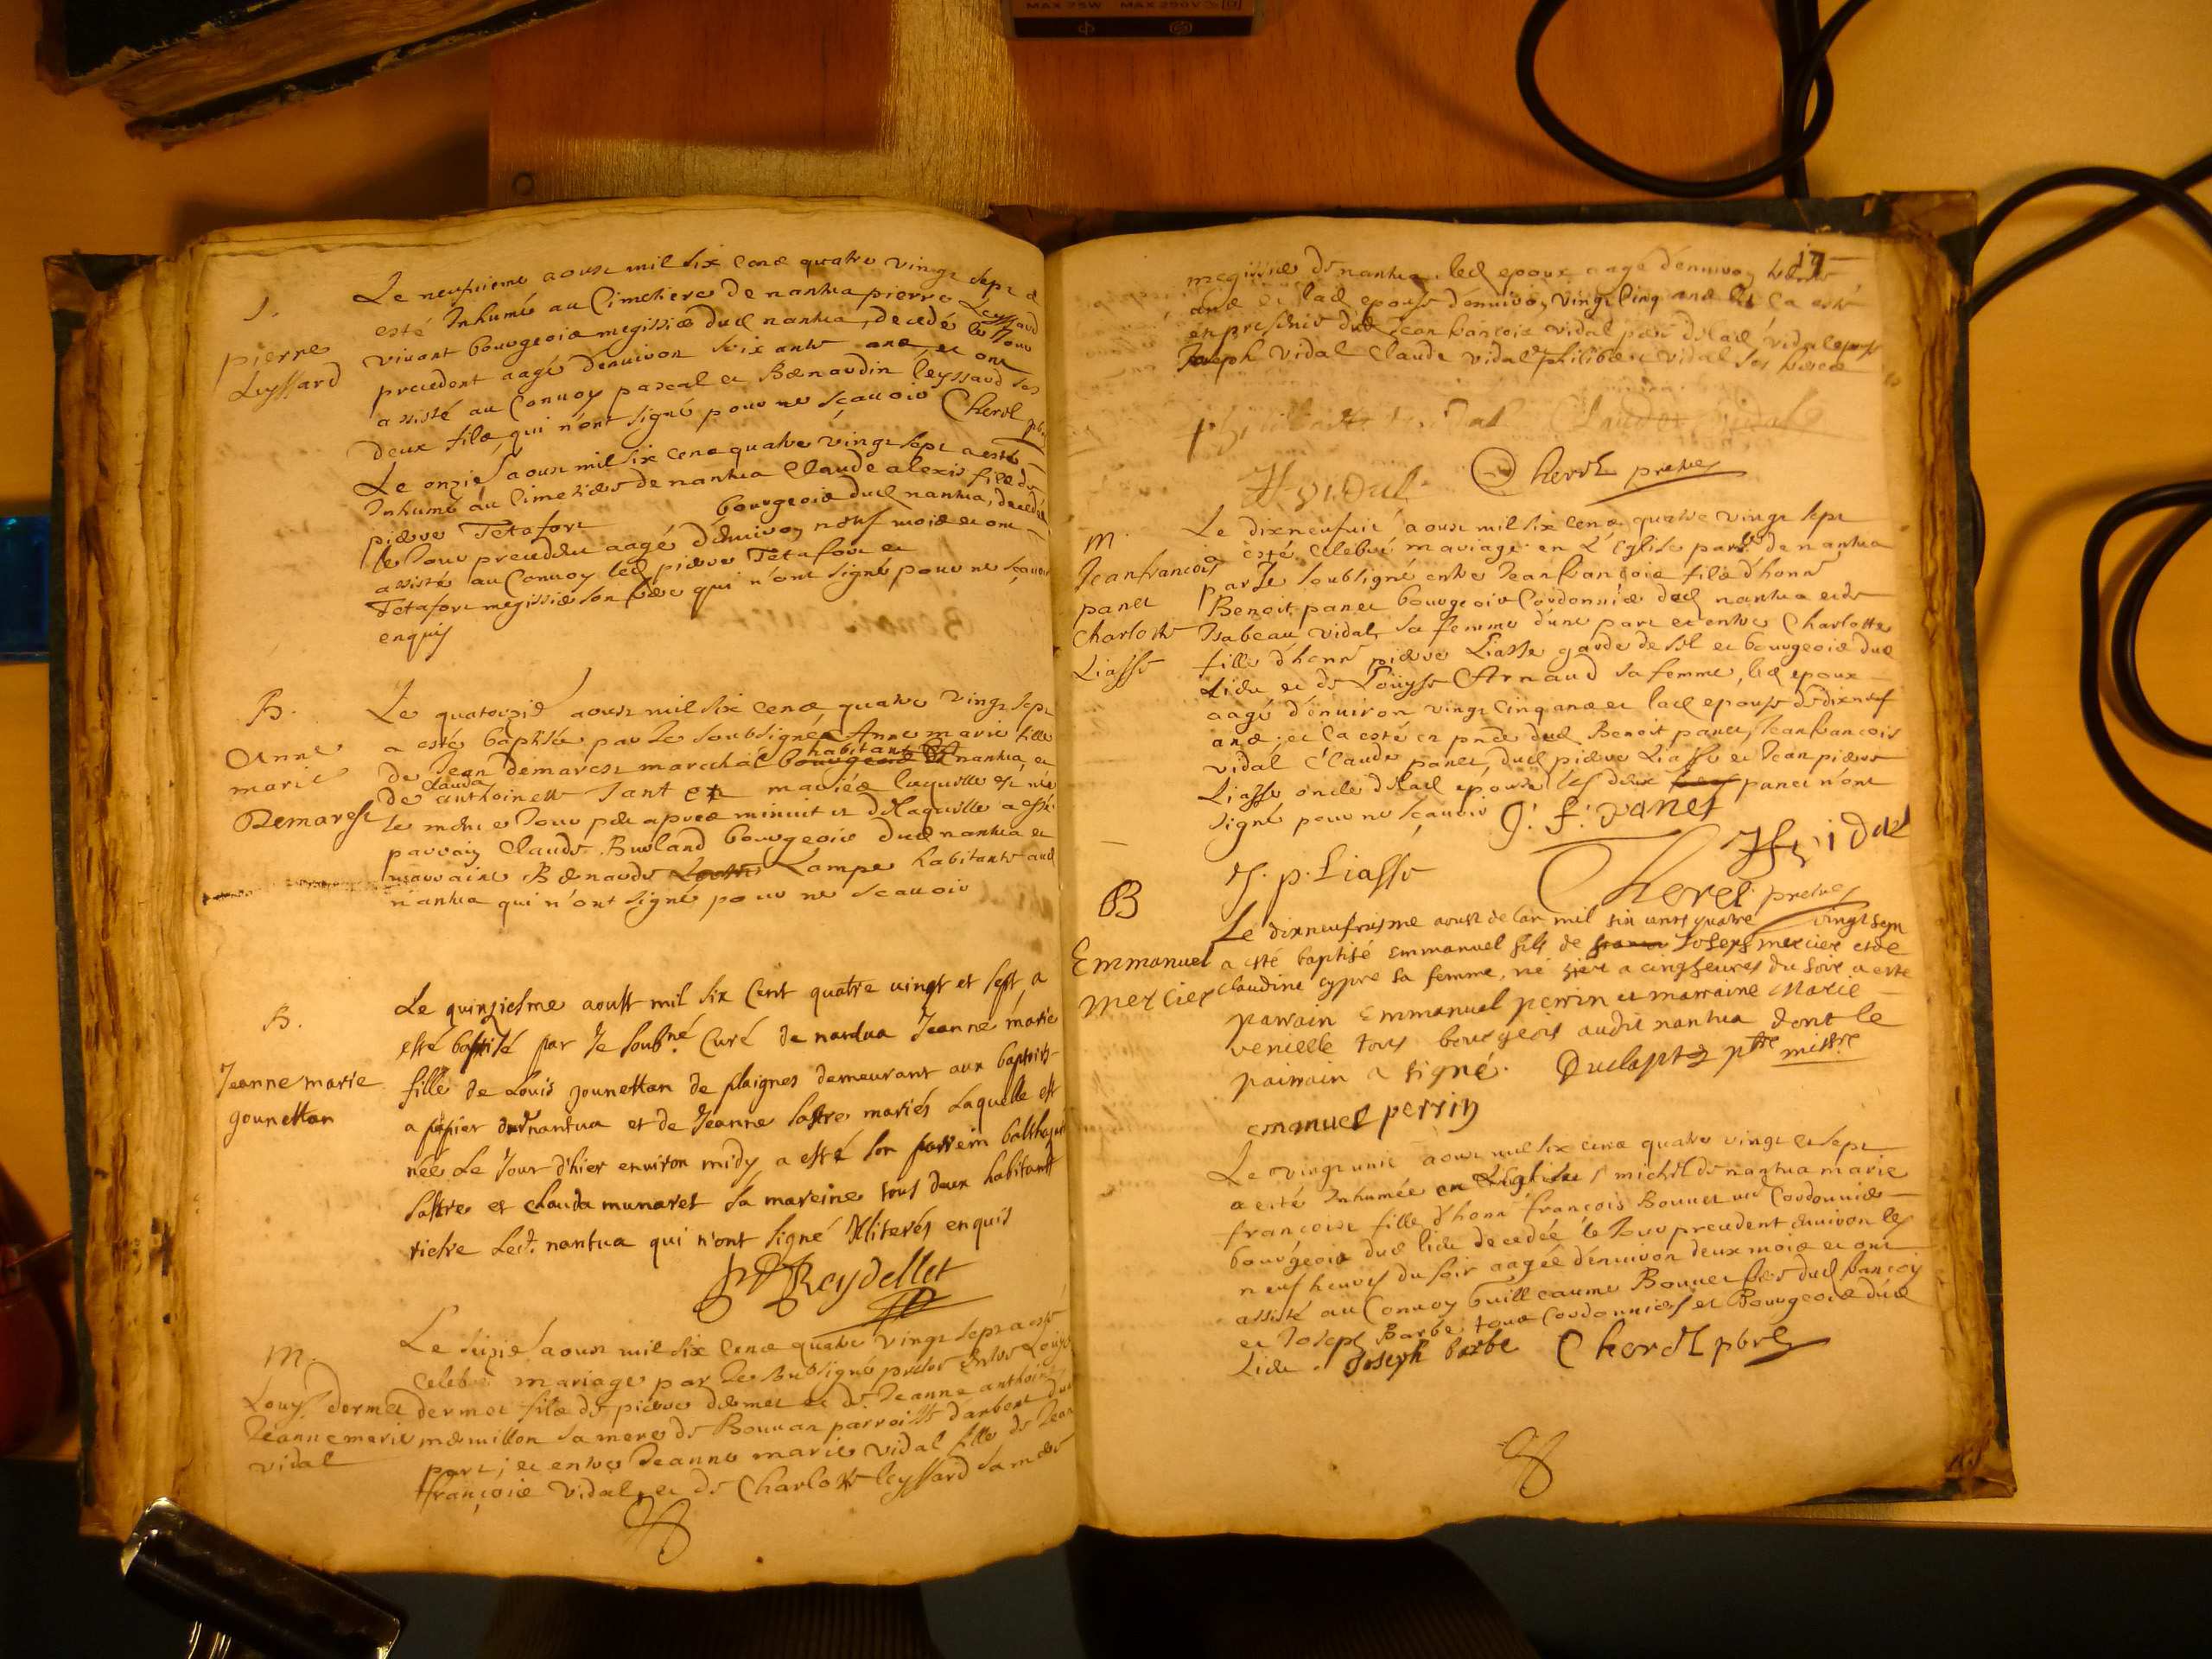 MAX 75W MAX 250V
S.
pierre
Leyssard
Le neufuieme aoust mil six cens quatre vingt sept a
esté Inhumé au Cimetiere de nantua pierre Leyssard
viuant bourgeois megissier dud nantua, decedé le Jour
precedent aagé denuiron soixante ans, et ont
assisté au Conuoy pascal et Bernardin leyssard ses
deux fils, qui n'ont signé pour ne scauoir Cherel pbr
Le onzie aoust mil six cens quatre vingt sept a esté
Inhumé au Cimetiere de nantua Claude alexis fils de
pierre Tetafort bourgeois dud nantua, decedé
le Jour precedent aagé d'enuiron neuf mois et ont
assisté au Conuoy led pierre Tetafort et
Tetafort megissier son frere qui n'ont signé pour ne scauoir
enquis
B.
Anne
marie
Demarest
Le quatorzie aoust mil six cens quatre vingt sept
a esté baptisée par Je soubsigné Anne marie fille
de Jean demarest marchal habitant nantua et
de Clauda anthoinette Jant mariés laquelle est née
le mesme Jour apres minuit et de laquelle a esté
parrain Claude Burland bourgeois dud nantua et
marraine Bernarde Lampe habitante aud
nantua qui n'ont signé pour ne scauoir
B.
Jeanne marie
gounettan
Le quinziesme aoust mil six Cent quatre vingt et sept, a
esté baptisé par Je soubné Curé de nantua Jeanne marie
fille de Louis gounettan de plaignes demeurant aux baptoirs
a papier dud nantua et de Jeanne sastre mariés Laquelle est
née Le Jour d'hier enuiron midy a esté son parrein balthazard
sastre et Clauda munaret sa mareine tous deux habitants
riere Led. nantua qui n'ont signé Illiterés enquis
Reydellet
M.
Louys dermet
Jeanne marie
vidal
Le seizie aoust mil six cens quatre vingt sept a esté
Celebré mariage par Je Subsigné prestre Entre Louys
dermet fils de pierre dermet et de Jeanne anthoinette
mermillon sa mere de Bouuan parroisse d'arbent d'une
part; et entre Jeanne marie vidal fille de Jean
françois vidal, et de Charlotte leyssard sa mere
17
megissier de nantua. led epoux aagé denuiron trente
ans et lad epouse denuiron vingt Cinq ans et Ca esté
en presence dud Jean francois vidal pere de lad vidal epouse
Joseph vidal Claude vidal et philibert vidal ses freres
philibert vidal Claude vidal
Jf vidal Cherel prestre
M.
Jeanfrancois
panet
Charlotte
Liasse
Le dixneufuie aoust mil six cens quatre vingt sept
a esté Celebré mariage en L'Eglise parle de nantua
par Je soubsigné entre Jean françois fils d'honn
Benoit panet bourgeois Cordonnier dud nantua et de
Isabeau vidal, sa femme d'une part et entre Charlotte
fille d'honn pierre Liasse garde de sel et bourgeois dud
Lieu et de Loüyse Arnaud sa femme, led epoux
aagé d'enuiron vingt Cinq ans et lad epouse de dixneuf
ans, et Ca esté en pnce dud Benoit panet, Jean francois
vidal Claude panet, dud pierre Liasse et Jean pierre
Liasse oncle de lad epouse les deux panet n'ont
signé pour ne scauoir J. f. panet
Jf vidal
J. p. Liasse
Cherel prestre
B
Emmanuel
Mercier
Le dixneufuisme aoust de lan mil six cents quatre vingt sept
a esté baptisé Emmanuel fils de Joseph mercier et de
Claudine cypre sa femme, né hier a cinq heures du soir a esté
parrain Emmanuel perrin et marraine Marie
venielle tous bourgeois audit nantua dont le
parrain a signé. Duclaptz ptre
emanuel perrin
Le vingt unie aoust mil six cens quatre vingt et sept
a esté Inhumée en L'Eglise s michel de nantua marie
francoise fille d'honn françois Bonnet Cordonnier
bourgeois dud lieu decedée le Jour precedent enuiron les
neuf heures du soir aagée denuiron deux mois et ont
assisté au Conuoy Guillaume Bonnet frere dud francois
et Joseph Barbe: tous Cordonniers et Bourgeois dud
Lieu. Joseph barbe Cherel pbre